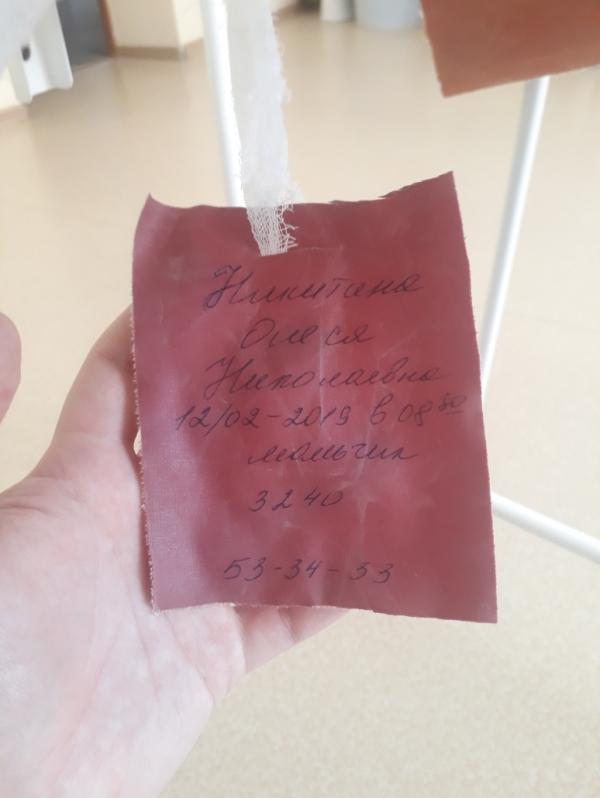 Никитина
Олеся
Николаевна
12/02-2019 в 08 50
мальчик
3240
53-34-33